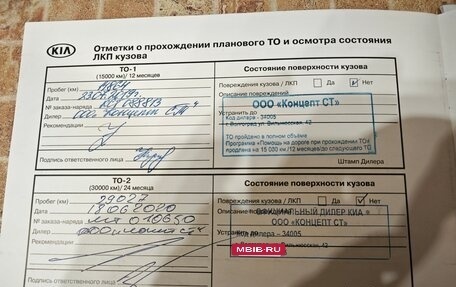 KIA
Отметки о прохождении планового ТО и осмотра состояния
ЛКП кузова
ТО-1
(15000 км)/ 12 месяцев
Состояние поверхности кузова
Пробег (км)
Повреждения кузова / ЛКП Да Нет
Дата
Описание повреждений
№ заказа-наряда
Дилер ООО "Концепт СТ"
Устранить до
Рекомендации
ООО «Концепт СТ»
Код дилера - 34005
г. Волгоград ул. Вильнюсская, 42
ТО пройдено в полном объёме
Программа «Помощь на дороге при прохождении ТО»
продлена на 15 000 км/12 месяцев/до следующего ТО
Подпись ответственного лица
Штамп Дилера
ТО-2
(30000 км)/ 24 месяца
Состояние поверхности кузова
Пробег (км) 29027
Повреждения кузова / ЛКП Да Нет
Дата 18062020
Описание
№ заказа-наряда 010650
Дилер
Устранить до
Рекомендации
ОФИЦИАЛЬНЫЙ ДИЛЕР КИА
ООО «КОНЦЕПТ СТ»
Код дилера - 34005
Вильнюсская, 42
MBIB.RU
Подпись ответственного лица